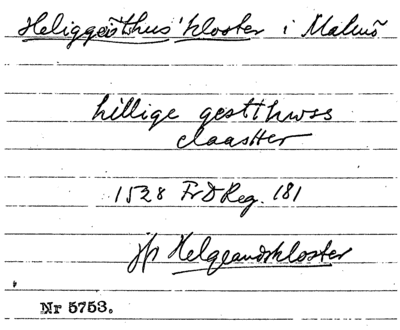 Heliggeisthus' kloster i Malmö
hillige gestthwss
claastter
1528 FrDReg. 181
jfr Helgeandskloster
Nr 5753.